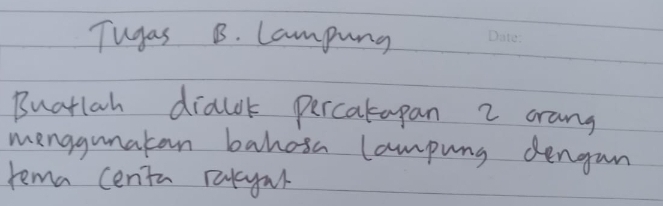 Tugas B. Lampung
Date:
Buatlah dialok percakapan 2 orang
menggunakan bahasa Lampung dengan
tema cerita rakyat